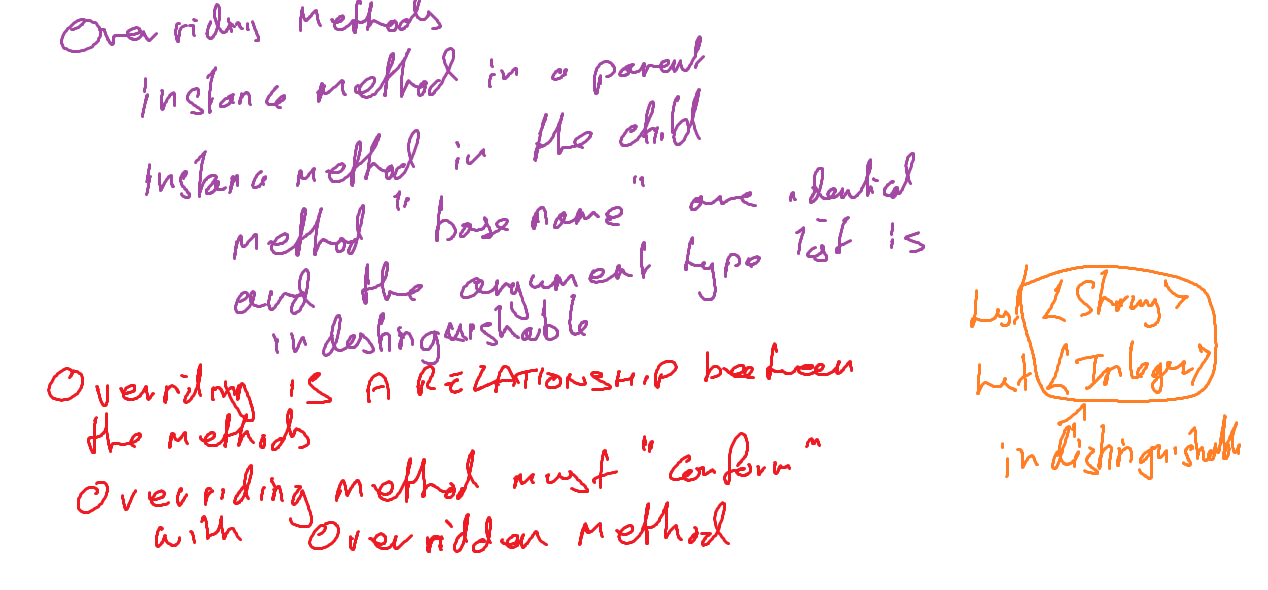 Overriding Methods
Instance method in a parent
Instance method in the child
method "base name" are identical
and the argument type list is
indestinguishable
Overriding IS A RELATIONSHIP between
the methods
Overriding method must "conform"
with Overridden method
List <String>
List <Integer>
indistinguishable